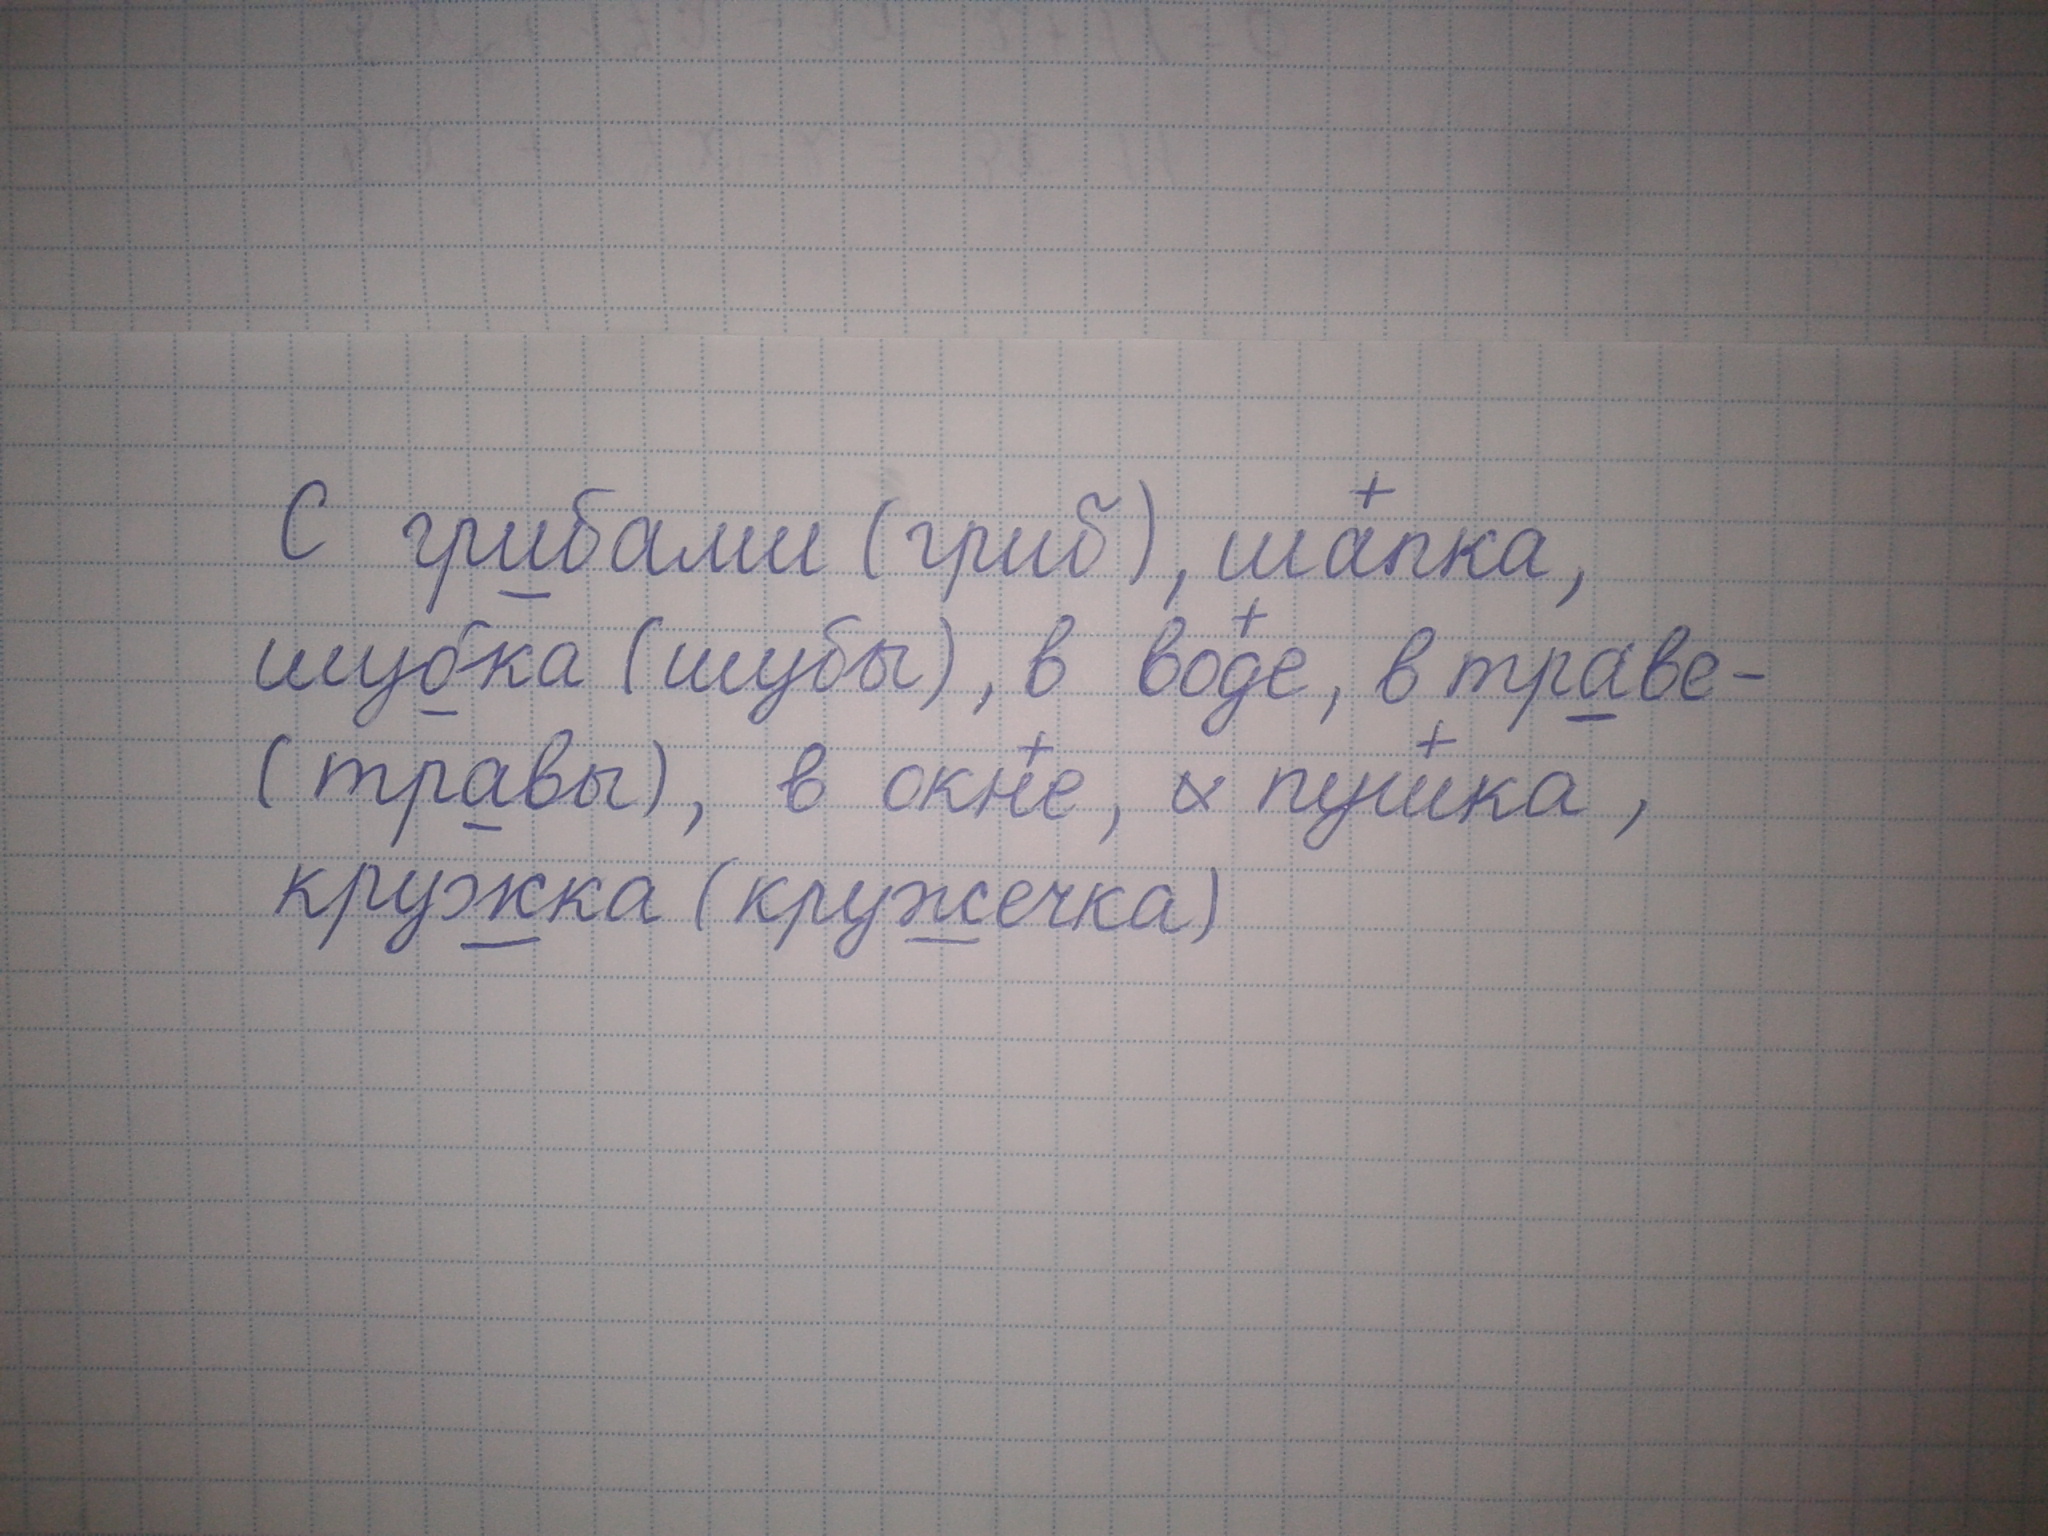 С грибами (гриб), шапка,
шубка (шубы), в воде, в траве-
(травы), в окне, пушка,
кружка (кружечка)